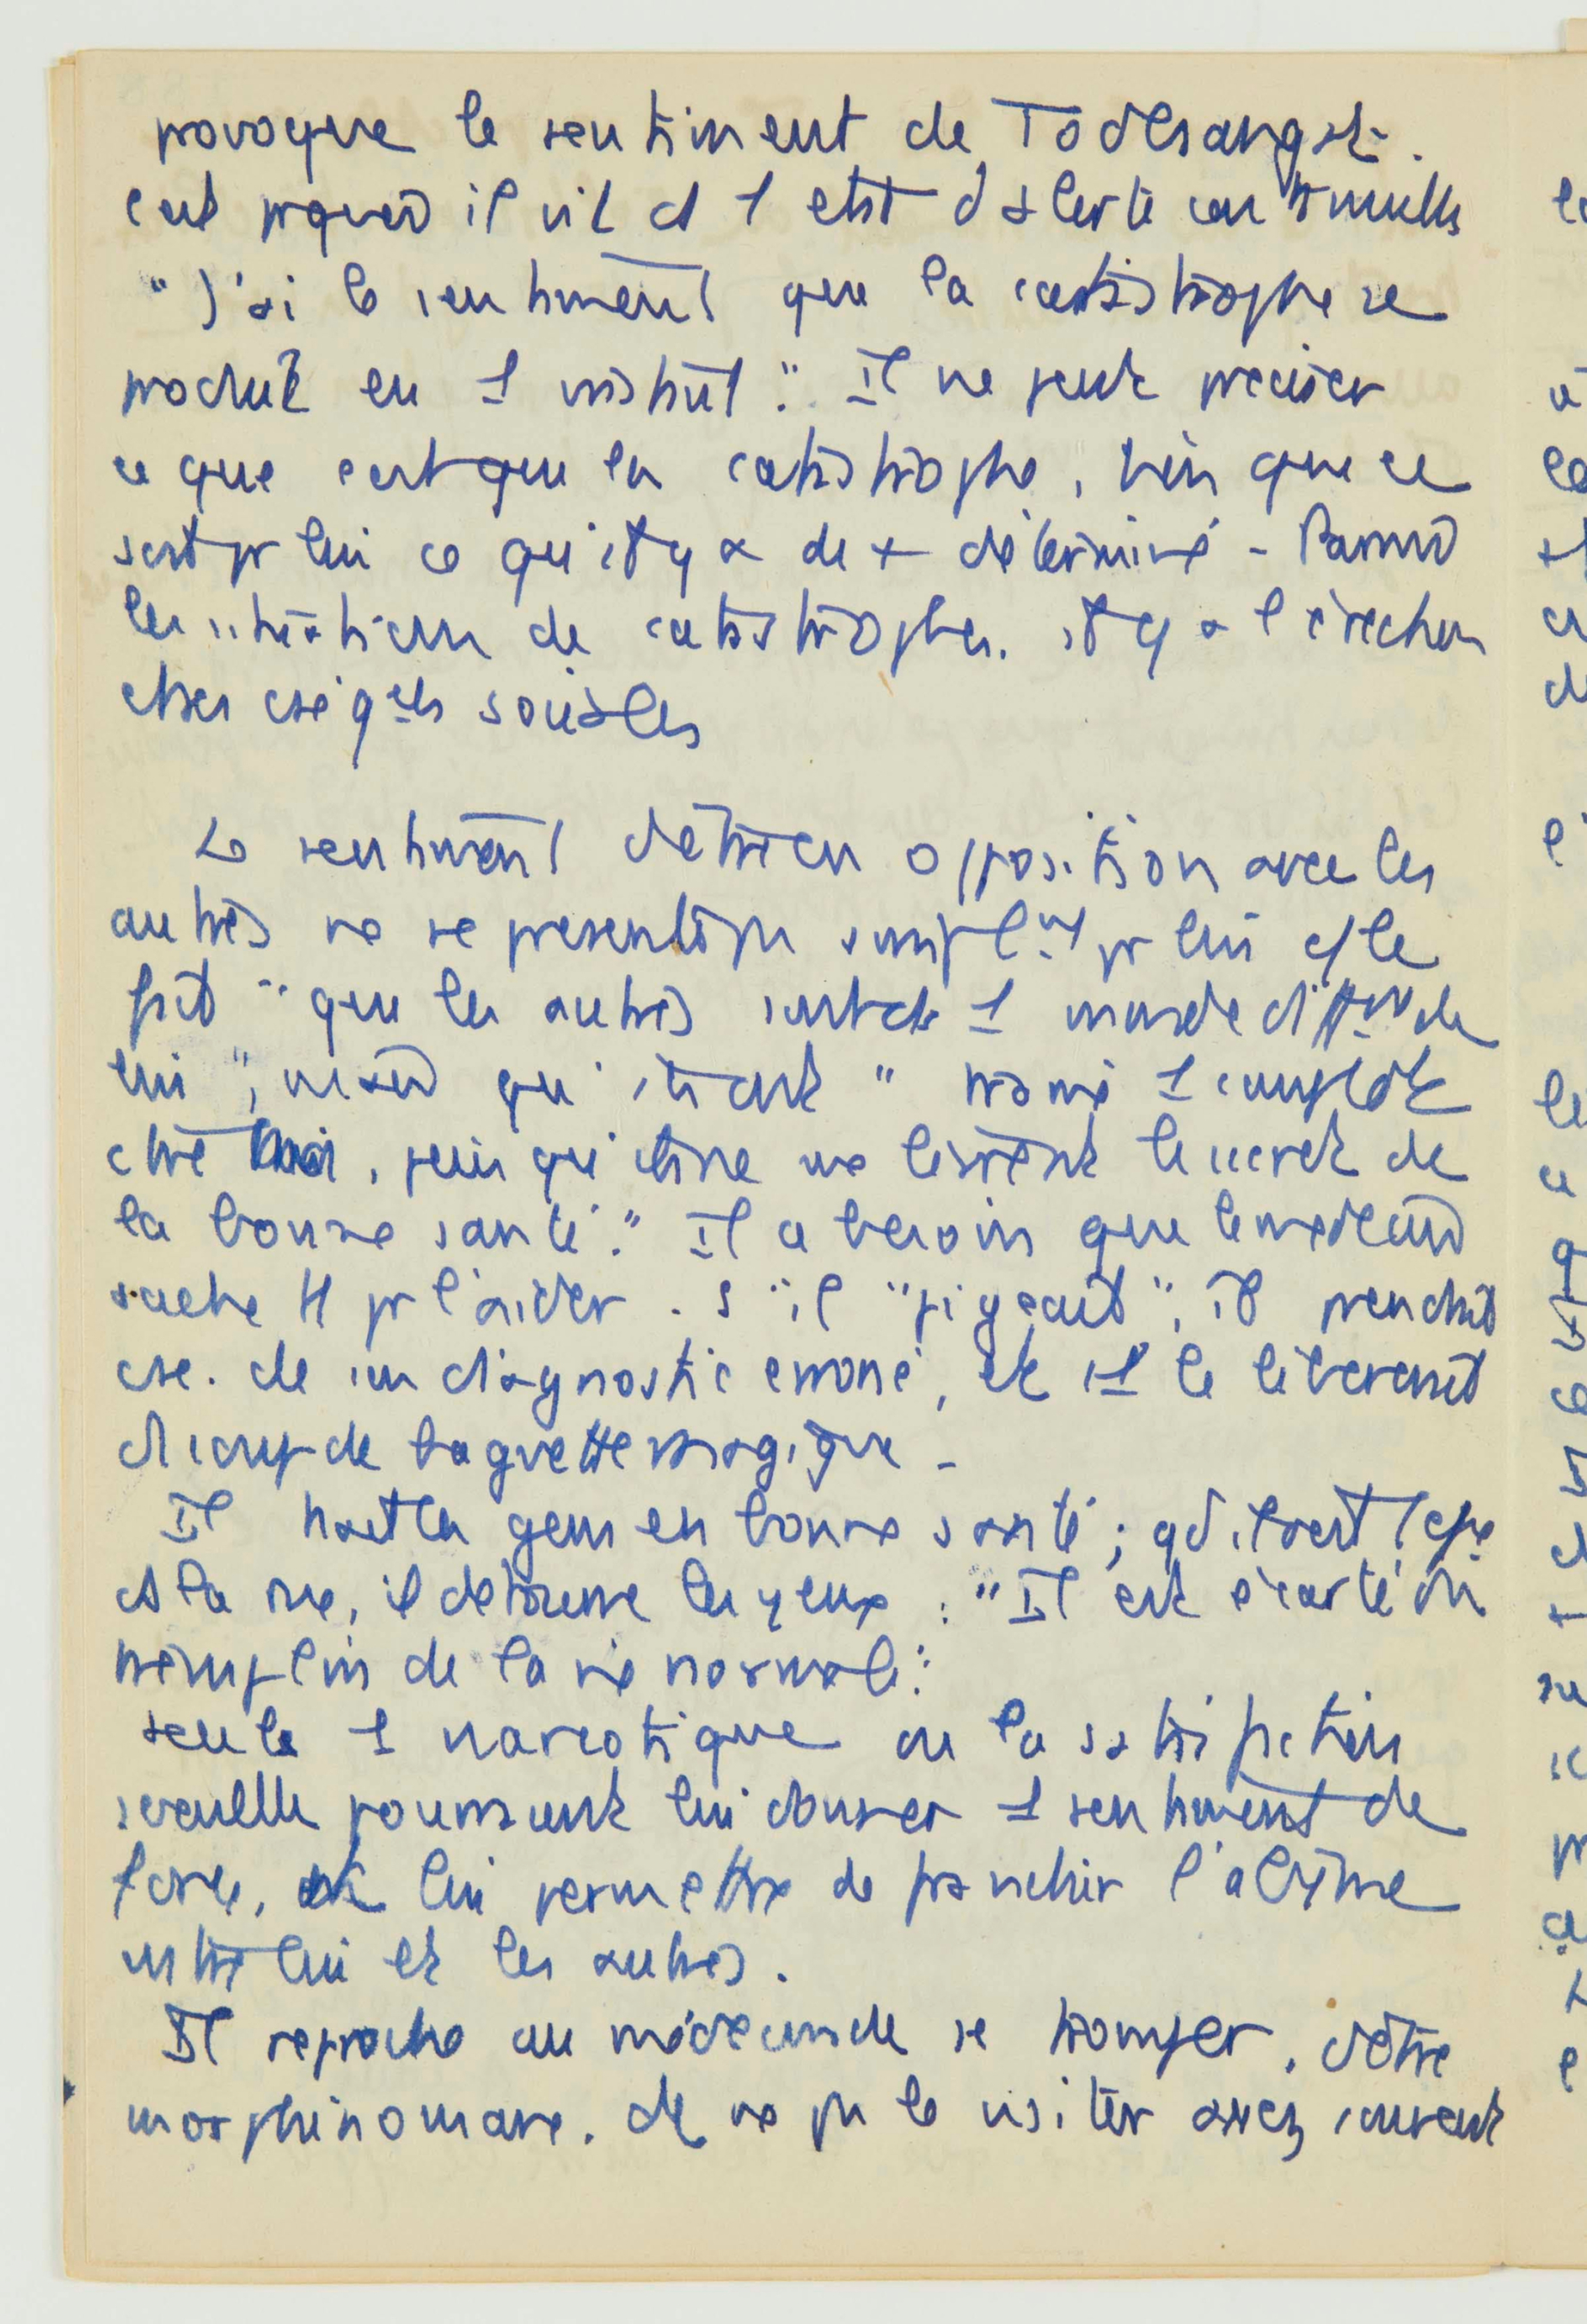 provoque le sentiment de Todesangst.
c'est pquoi il vit ds 1 état d'alerte continuelle
"J'ai le sentiment que la catastrophe se
produit en 1 instant". Il ne peut préciser
ce que c'est que la catastrophe, bien que ce
soit pr lui ce qu'il y a de + déterminé - Parmi
les situations de catastrophes. il y a l'érection
et les cséqces sociales
Le sentiment d'être en opposition avec les
autres ne se présente pas simplemt pr lui c/ le
fait "que les autres sont ds 1 monde différent de
lui", mais qu'ils ont "tramé 1 complot
ctre moi, puisqu'ils ne me livrent le secret de
la bonne santé". Il a besoin que le médecin
sache tt pr l'aider. S'il "pigeait", il prendrait
csc. de son diagnostic erroné, et il le libérerait
d'1 coup de baguette magique -
Il hait les gens en bonne santé ; qd il voit 1 cple
ds la rue, il détourne les yeux : "Il est écarté du
tremplin de la vie normale".
seule 1 narcotique ou la satisfaction
sexuelle pourraient lui donner 1 sentiment de
force, et lui permettre de franchir l'abîme
entre lui et les autres.
Il reproche au médecin de se tromper, d'être
morphinomane, de ne pas le visiter assez souvent